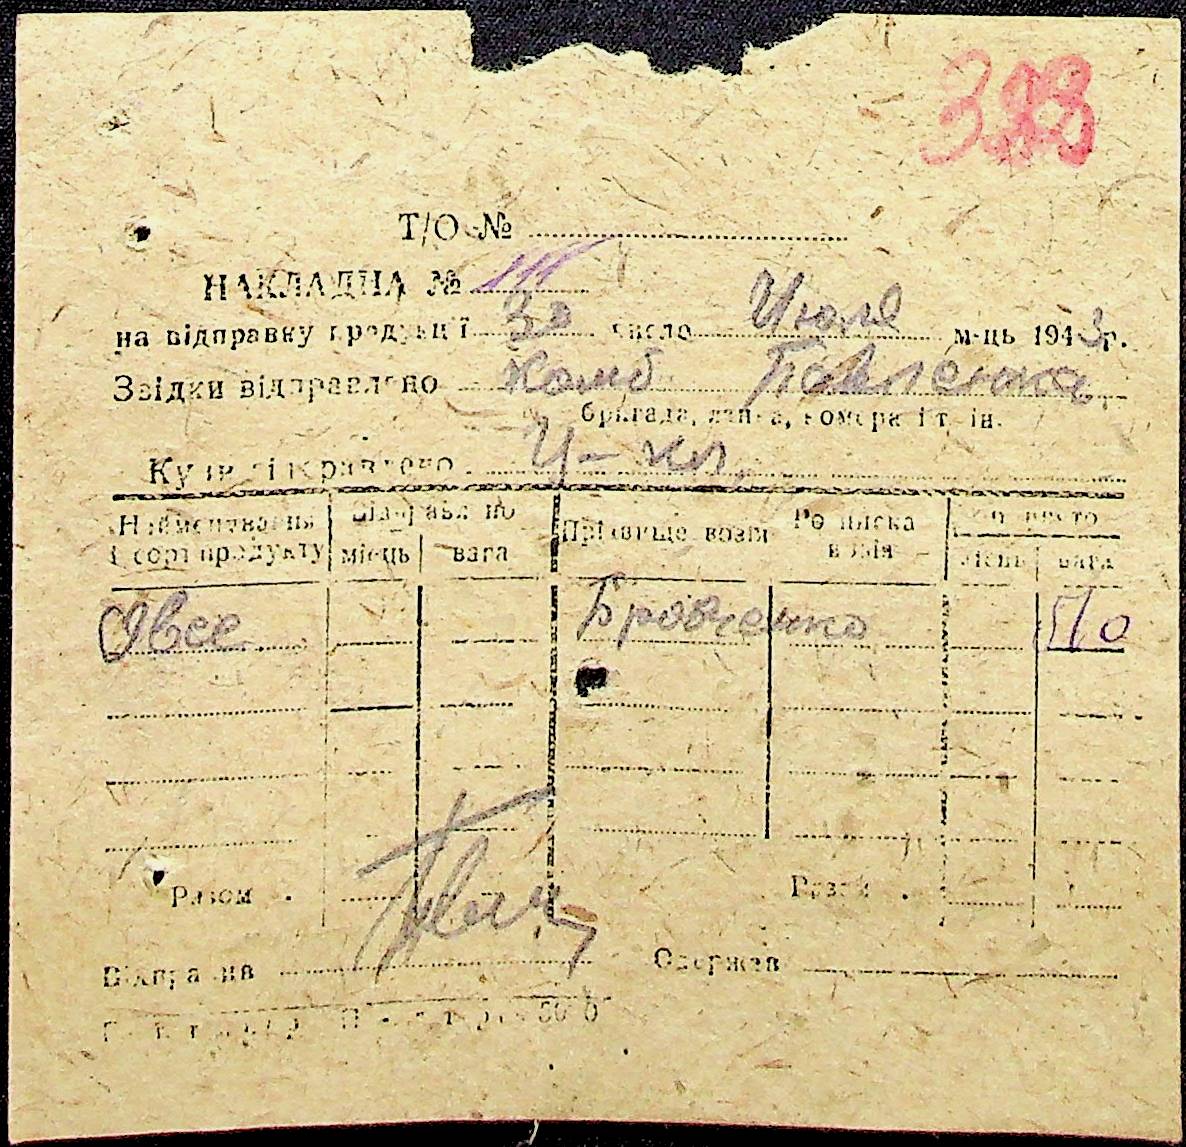 Т/О №
НАКЛАДНА №
на відправку продукції 30 число Июля м-ць 1943 р.
Звідки відправлено Комб Павленка
бригада, ланка, комера і т. ін.
Куди відправлено
Найменування і сорт продукту
Відправлено
місць вага
Прізвище возія
Розписка возія
місць вага
Овес Бровченко 510
Разом Разом
Відправив Одержав